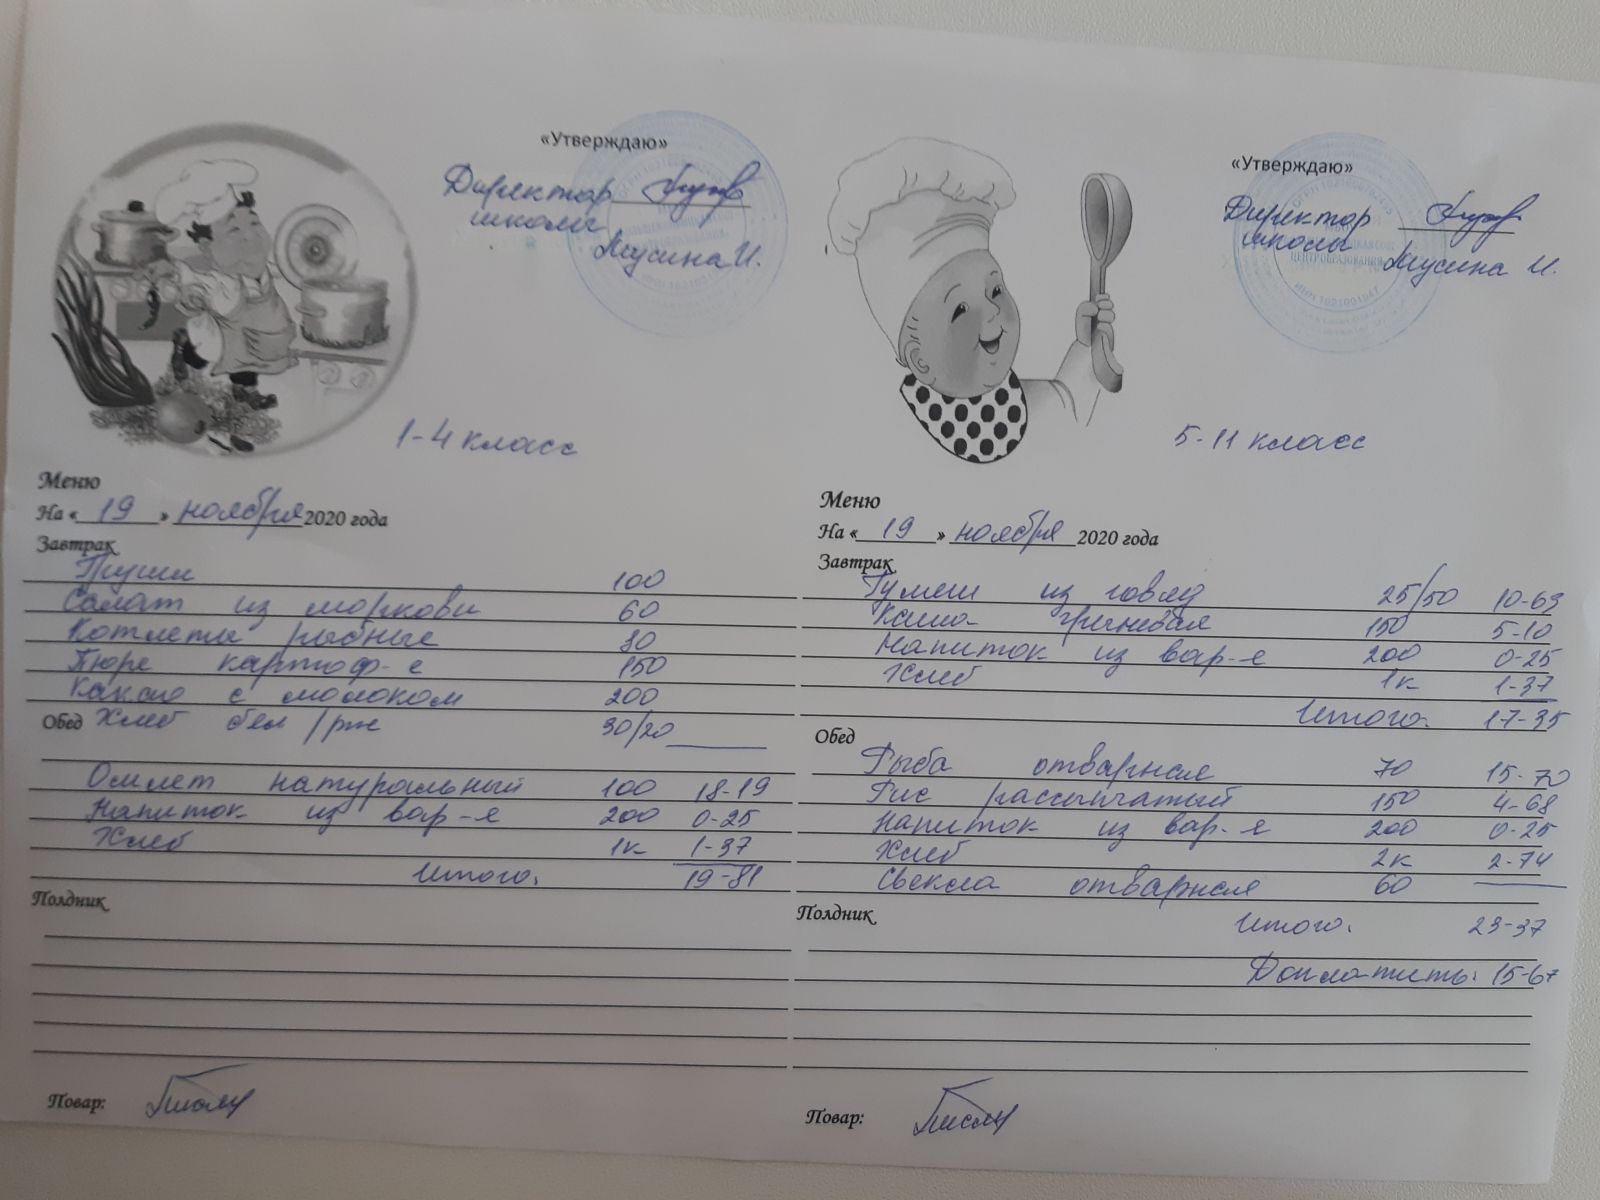 «Утверждаю»
Директор
школы
Мусина И.
1-4 класс
Меню
На « 19 » ноября 2020 года
Завтрак
Груши 100
Салат из моркови 60
Котлеты рыбные 80
Пюре картоф-е 150
Какао с молоком 200
Обед Хлеб бел/рж 30/20
Омлет натуральный 100 18-19
Напиток из вар-я 200 0-25
Хлеб 1к 1-37
Итого. 19-81
Полдник
Повар:
«Утверждаю»
Директор
школы
Мусина И.
ЦЕНТР ОБРАЗОВАНИЯ
5-11 класс
Меню
На « 19 » ноября 2020 года
Завтрак
Гуляш из говяд 25/50 10-63
Каша гречневая 150 5-10
Напиток из вар-я 200 0-25
Хлеб 1к 1-37
Итого. 17-35
Обед
Рыба отварная 70 15-70
Рис рассыпчатый 150 4-68
Напиток из вар-я 200 0-25
Хлеб 2к 2-74
Свекла отварная 60
Полдник
Итого. 23-37
Доплатить. 15-67
Повар: